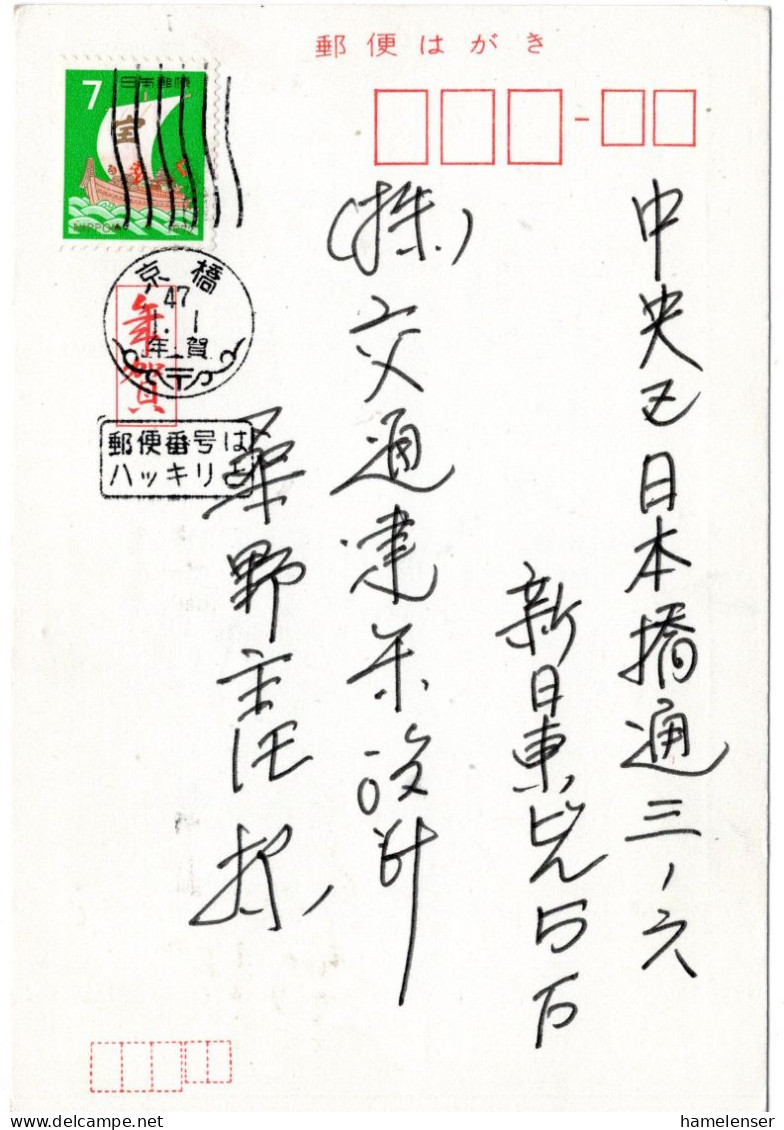 郵便はがき
7
日本郵便
宝
NIPPON
京橋
47
1.1
年賀
年賀
郵便番号は
ハッキリと
中央区日本橋通三ノ六
新日東ビル
(株)交通建築設計
野主任様
hamelenser